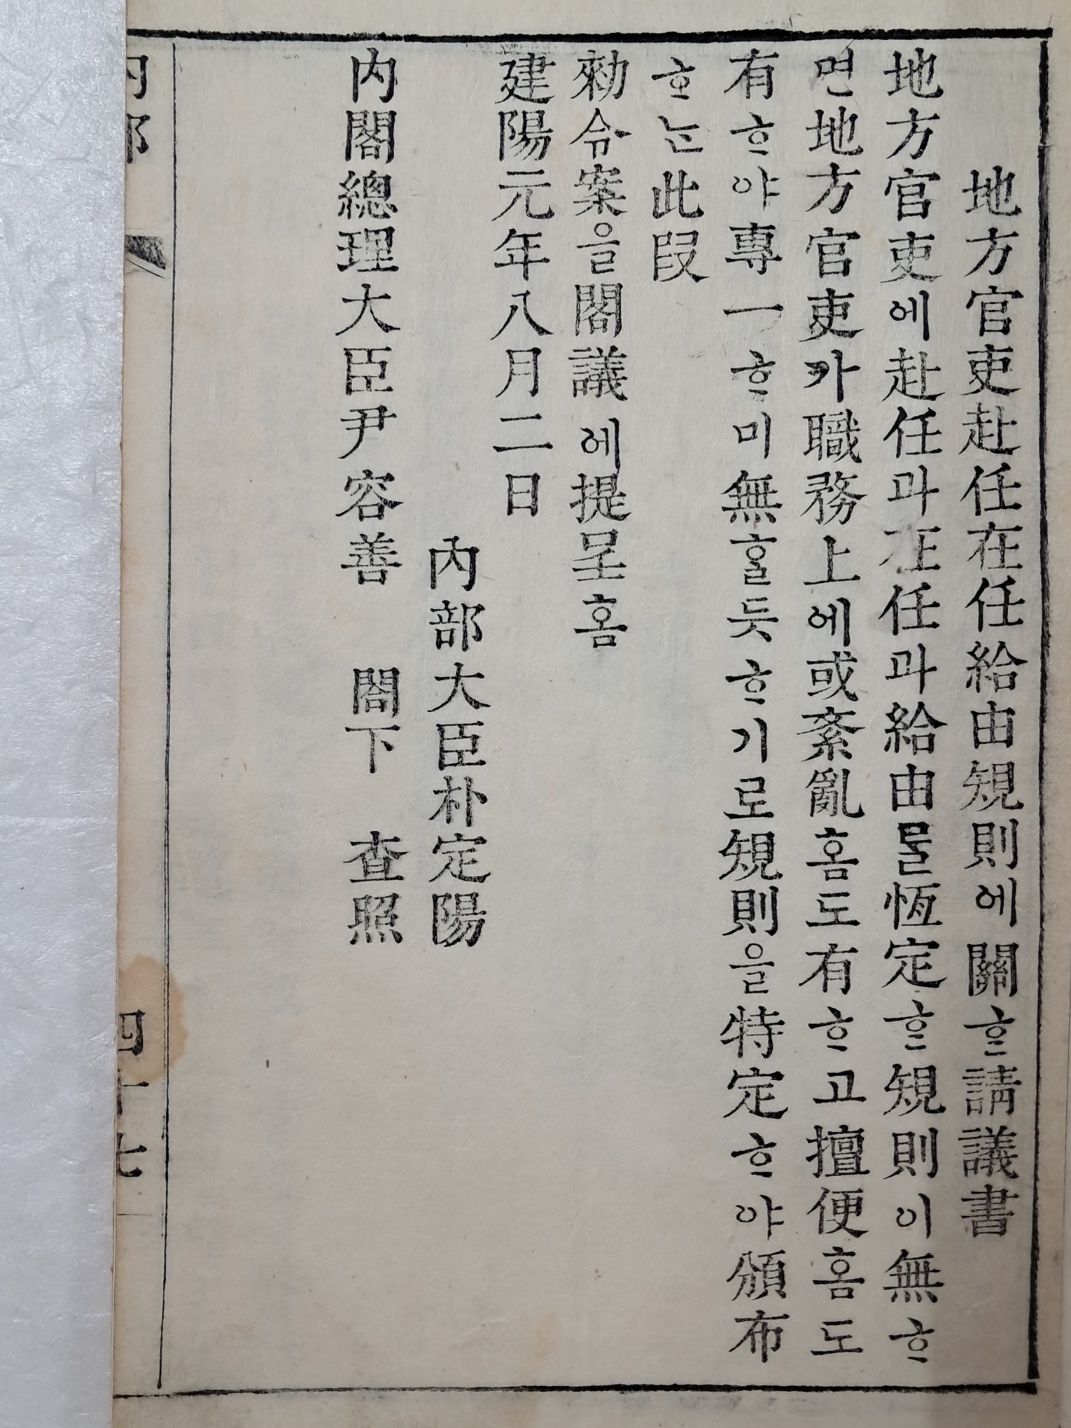 地方官吏赴任在任給由䂓則에關ᄒᆞᆫ請議書
地方官吏에赴任과在任과給由를恆定ᄒᆞᆫ䂓則이無ᄒᆞ
면地方官吏가職務上에或紊亂홈도有ᄒᆞ고擅便홈도
有ᄒᆞ야專一ᄒᆞ미無ᄒᆞᆯ듯ᄒᆞ기로䂓則을特定ᄒᆞ야頒布
ᄒᆞᄂᆞᆫ此段
勅令案을閣議에提呈홈
建陽元年八月二日
內部大臣朴定陽
內閣總理大臣尹容善 閣下 查照
內部 四十七